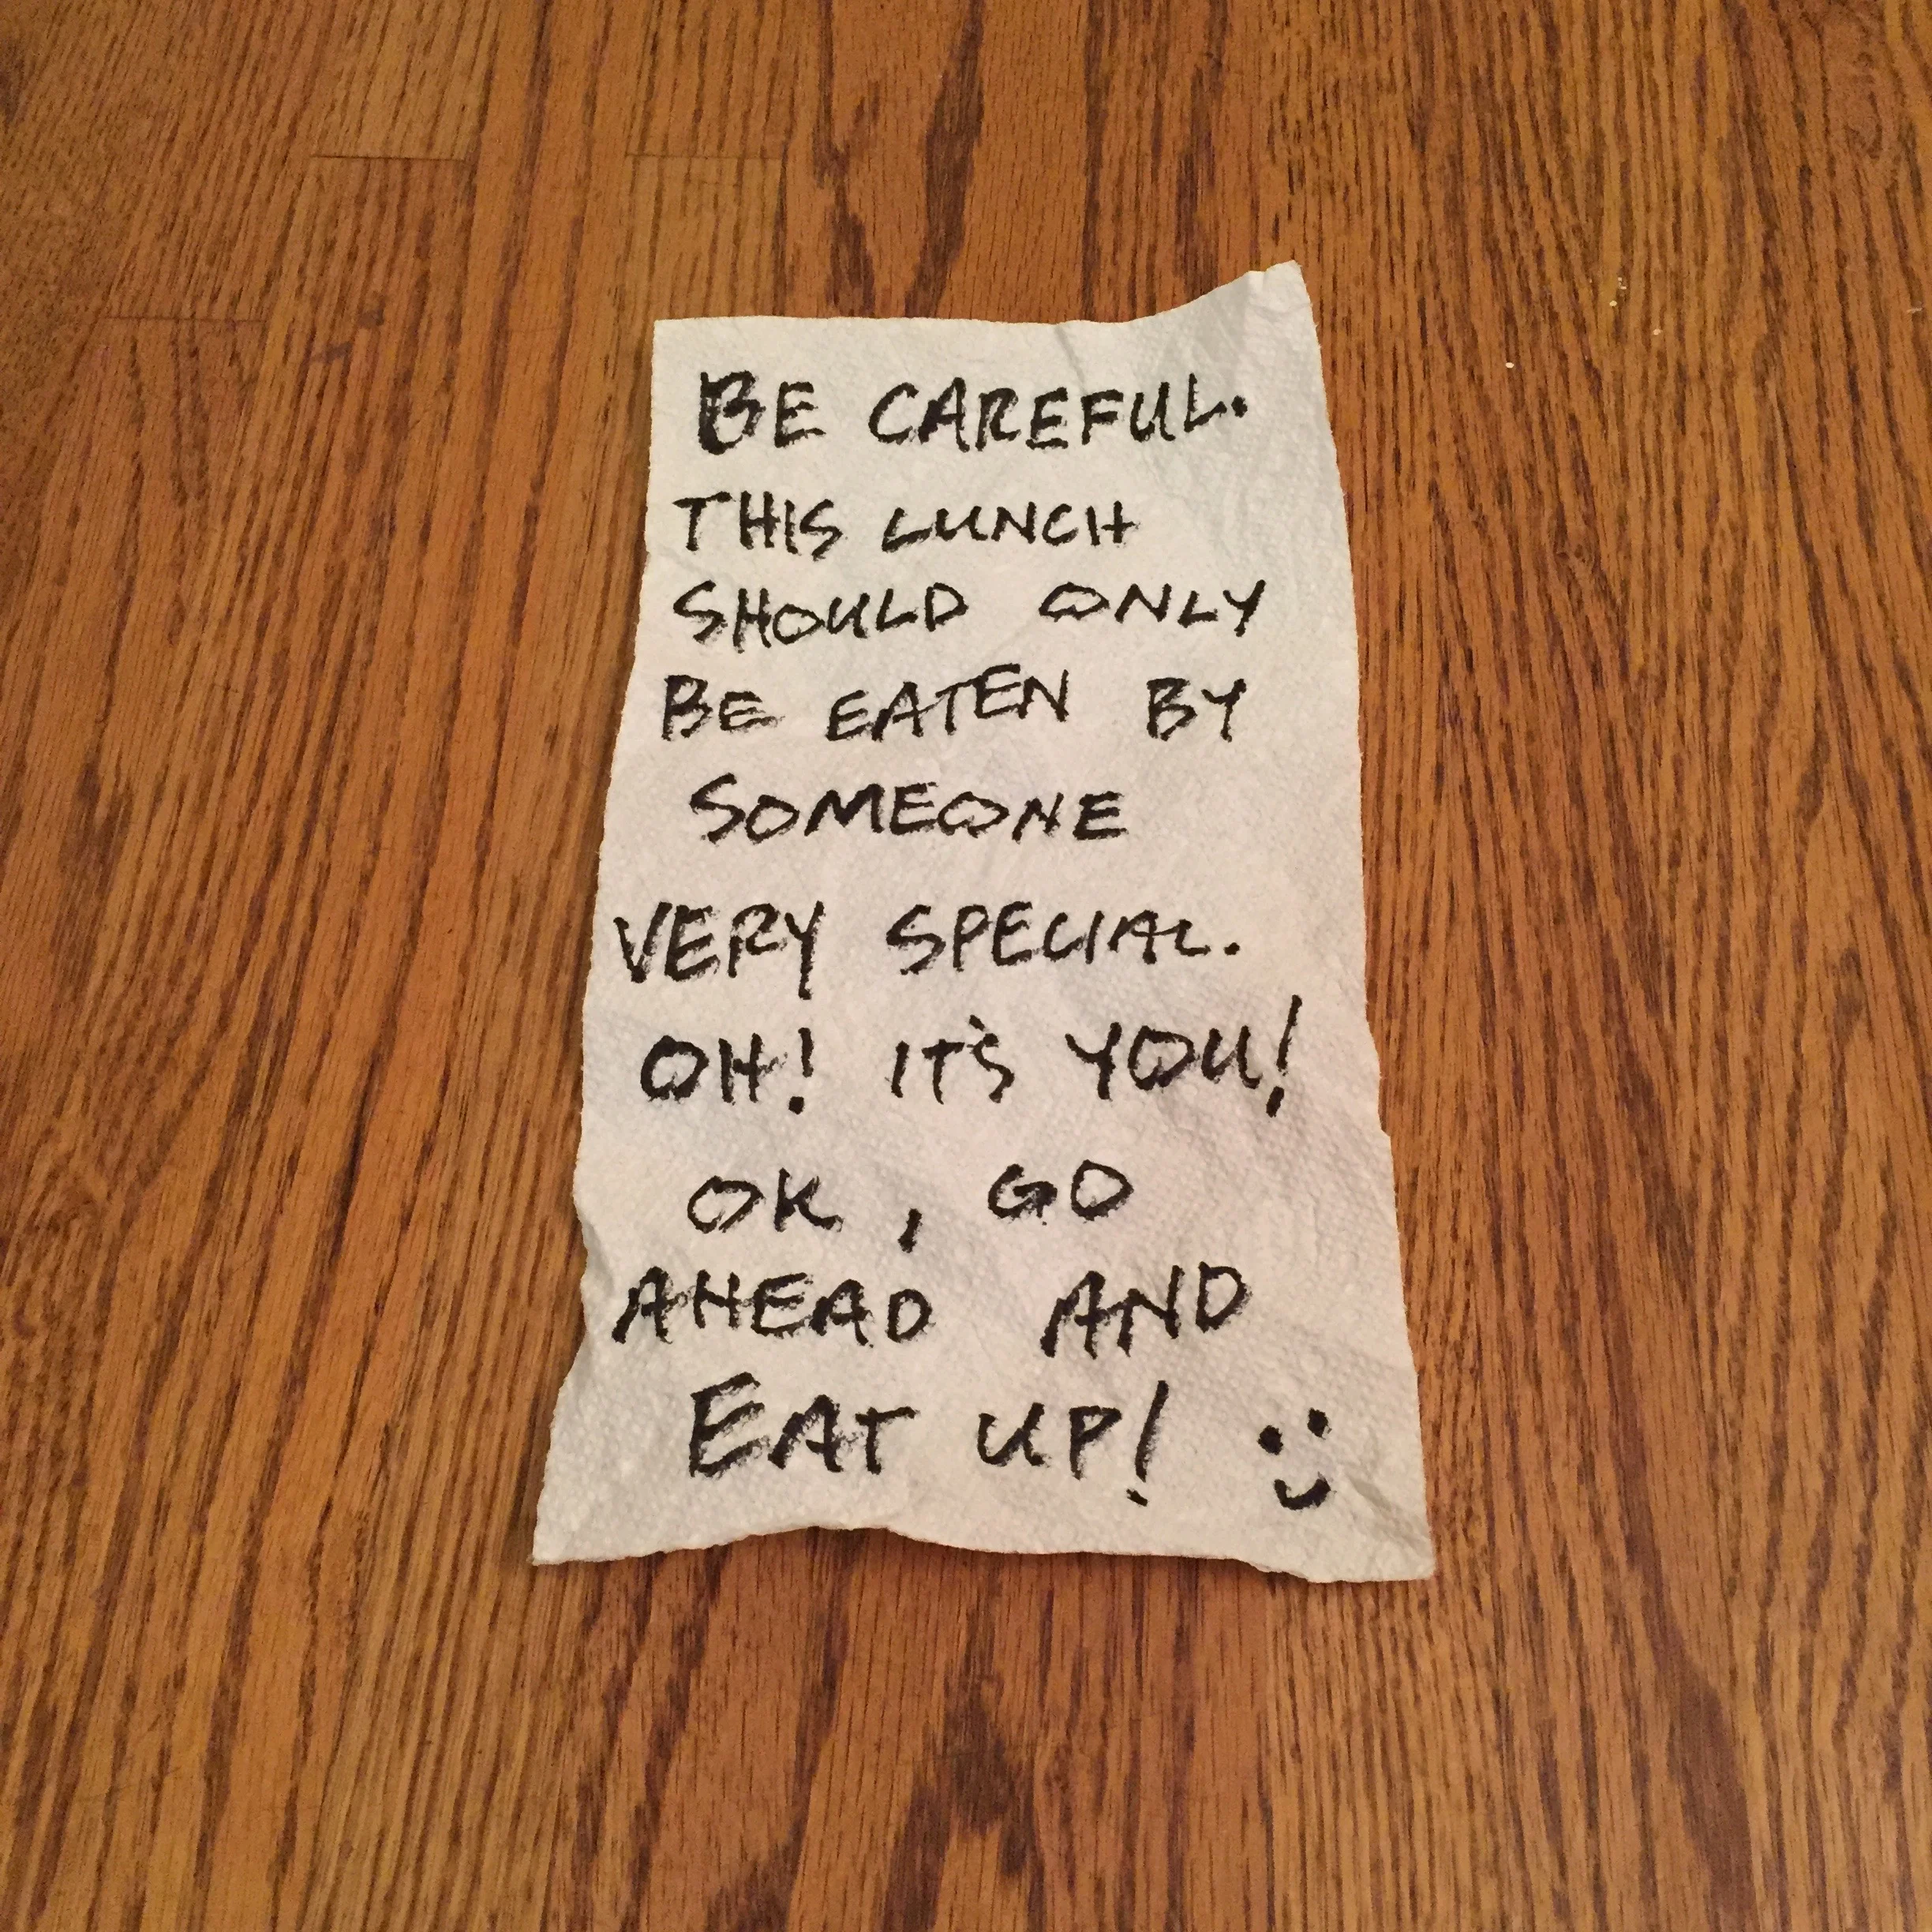 BE CAREFUL.
THIS LUNCH
SHOULD ONLY
BE EATEN BY
SOMEONE
VERY SPECIAL.
OH! IT'S YOU!
OK, GO
AHEAD AND
EAT UP! :)